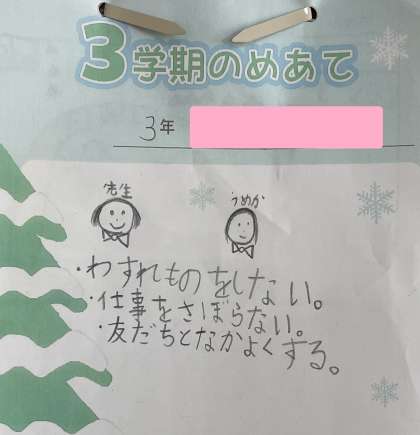 3学期のめあて
3年
先生
うめか
・わすれものをしない。
・仕事をさぼらない。
・友だちとなかよくする。